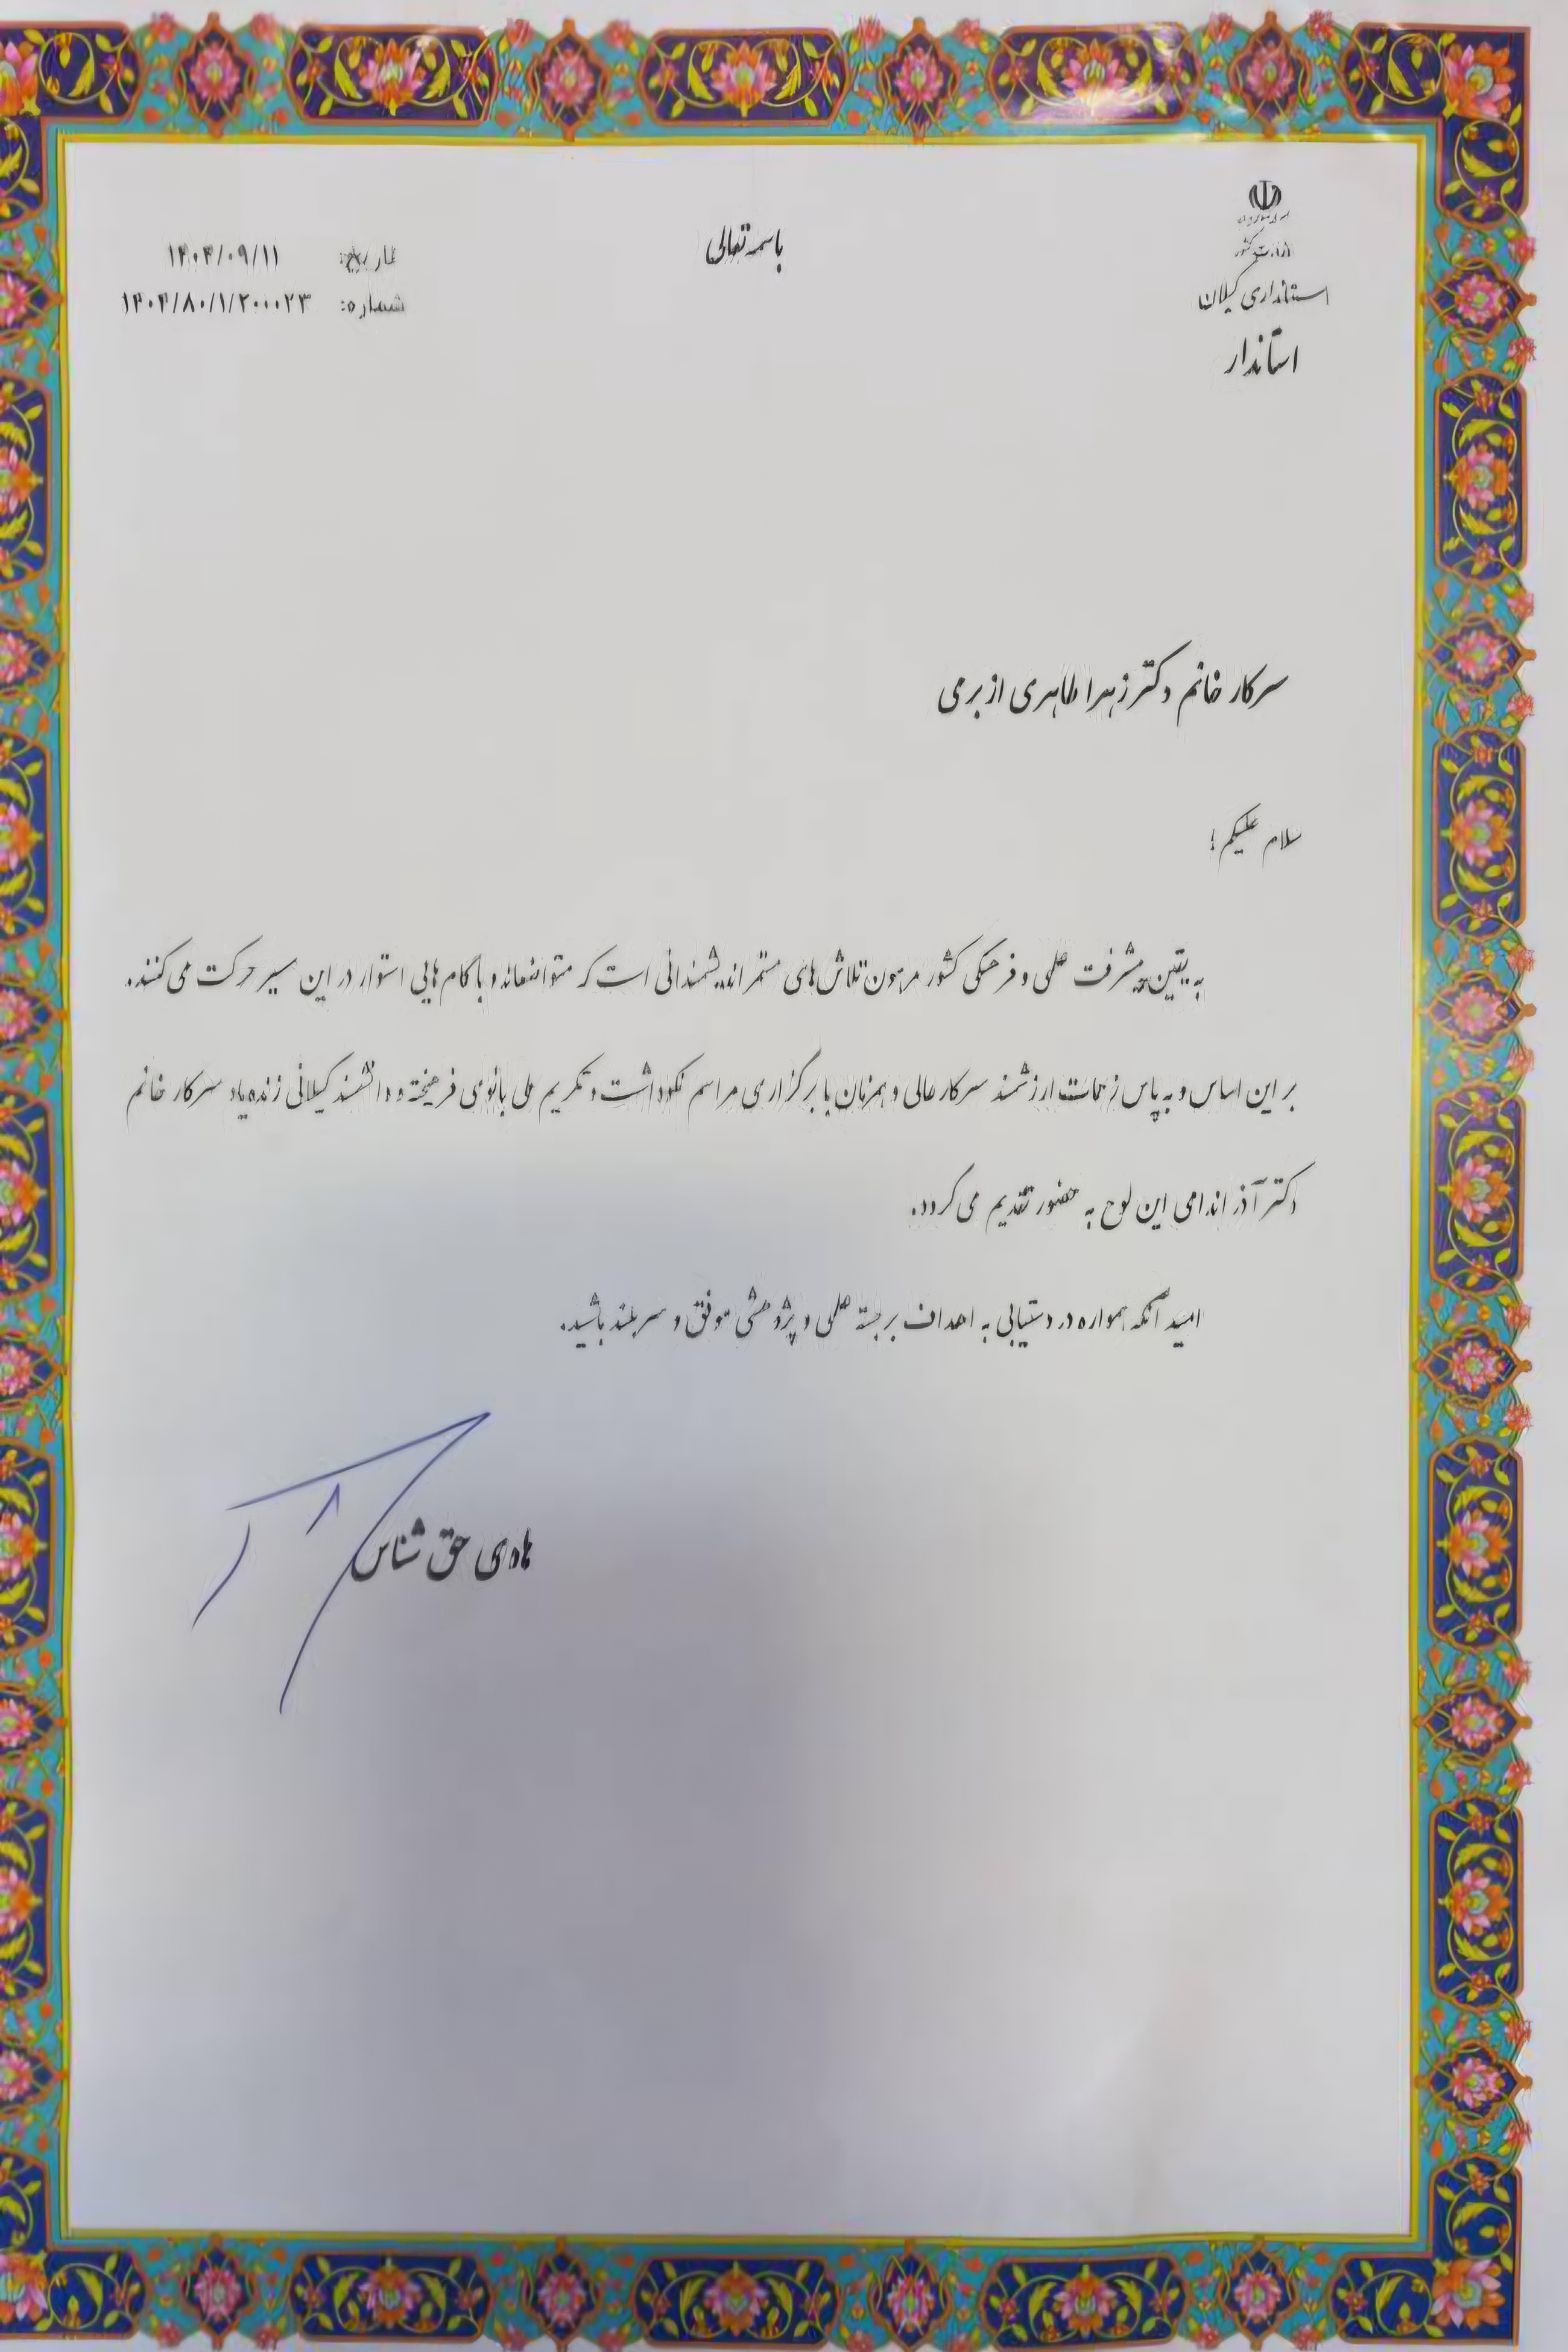 باسمه تعالی
وزارت کشور
استانداری گیلان
استاندار
تاریخ: ۱۴۰۴/۰۹/۱۱
شماره: ۱۴۰۴/۸۰/۱/۲۰۰۰۲۳
سرکار خانم دکتر زهرا طاهری ازبرمی
سلام علیکم؛
به یقین پیشرفت علمی و فرهنگی کشور مرهون تلاش‌های مستمر اندیشمندانی است که متواضعانه و با گام هایی استوار در این مسیر حرکت می کنند.
بر این اساس و به پاس زحمات ارزشمند سرکار عالی و همزمان با برگزاری مراسم نکوداشت و تکریم ملی بانوی فرهیخته و دانشمند گیلانی زنده یاد سرکار خانم
دکتر آذر اندامی این لوح به حضور تقدیم می گردد.
امید آنکه همواره در دستیابی به اهداف برجسته علمی و پژوهشی موفق و سربلند باشید.
هادی حق شناس